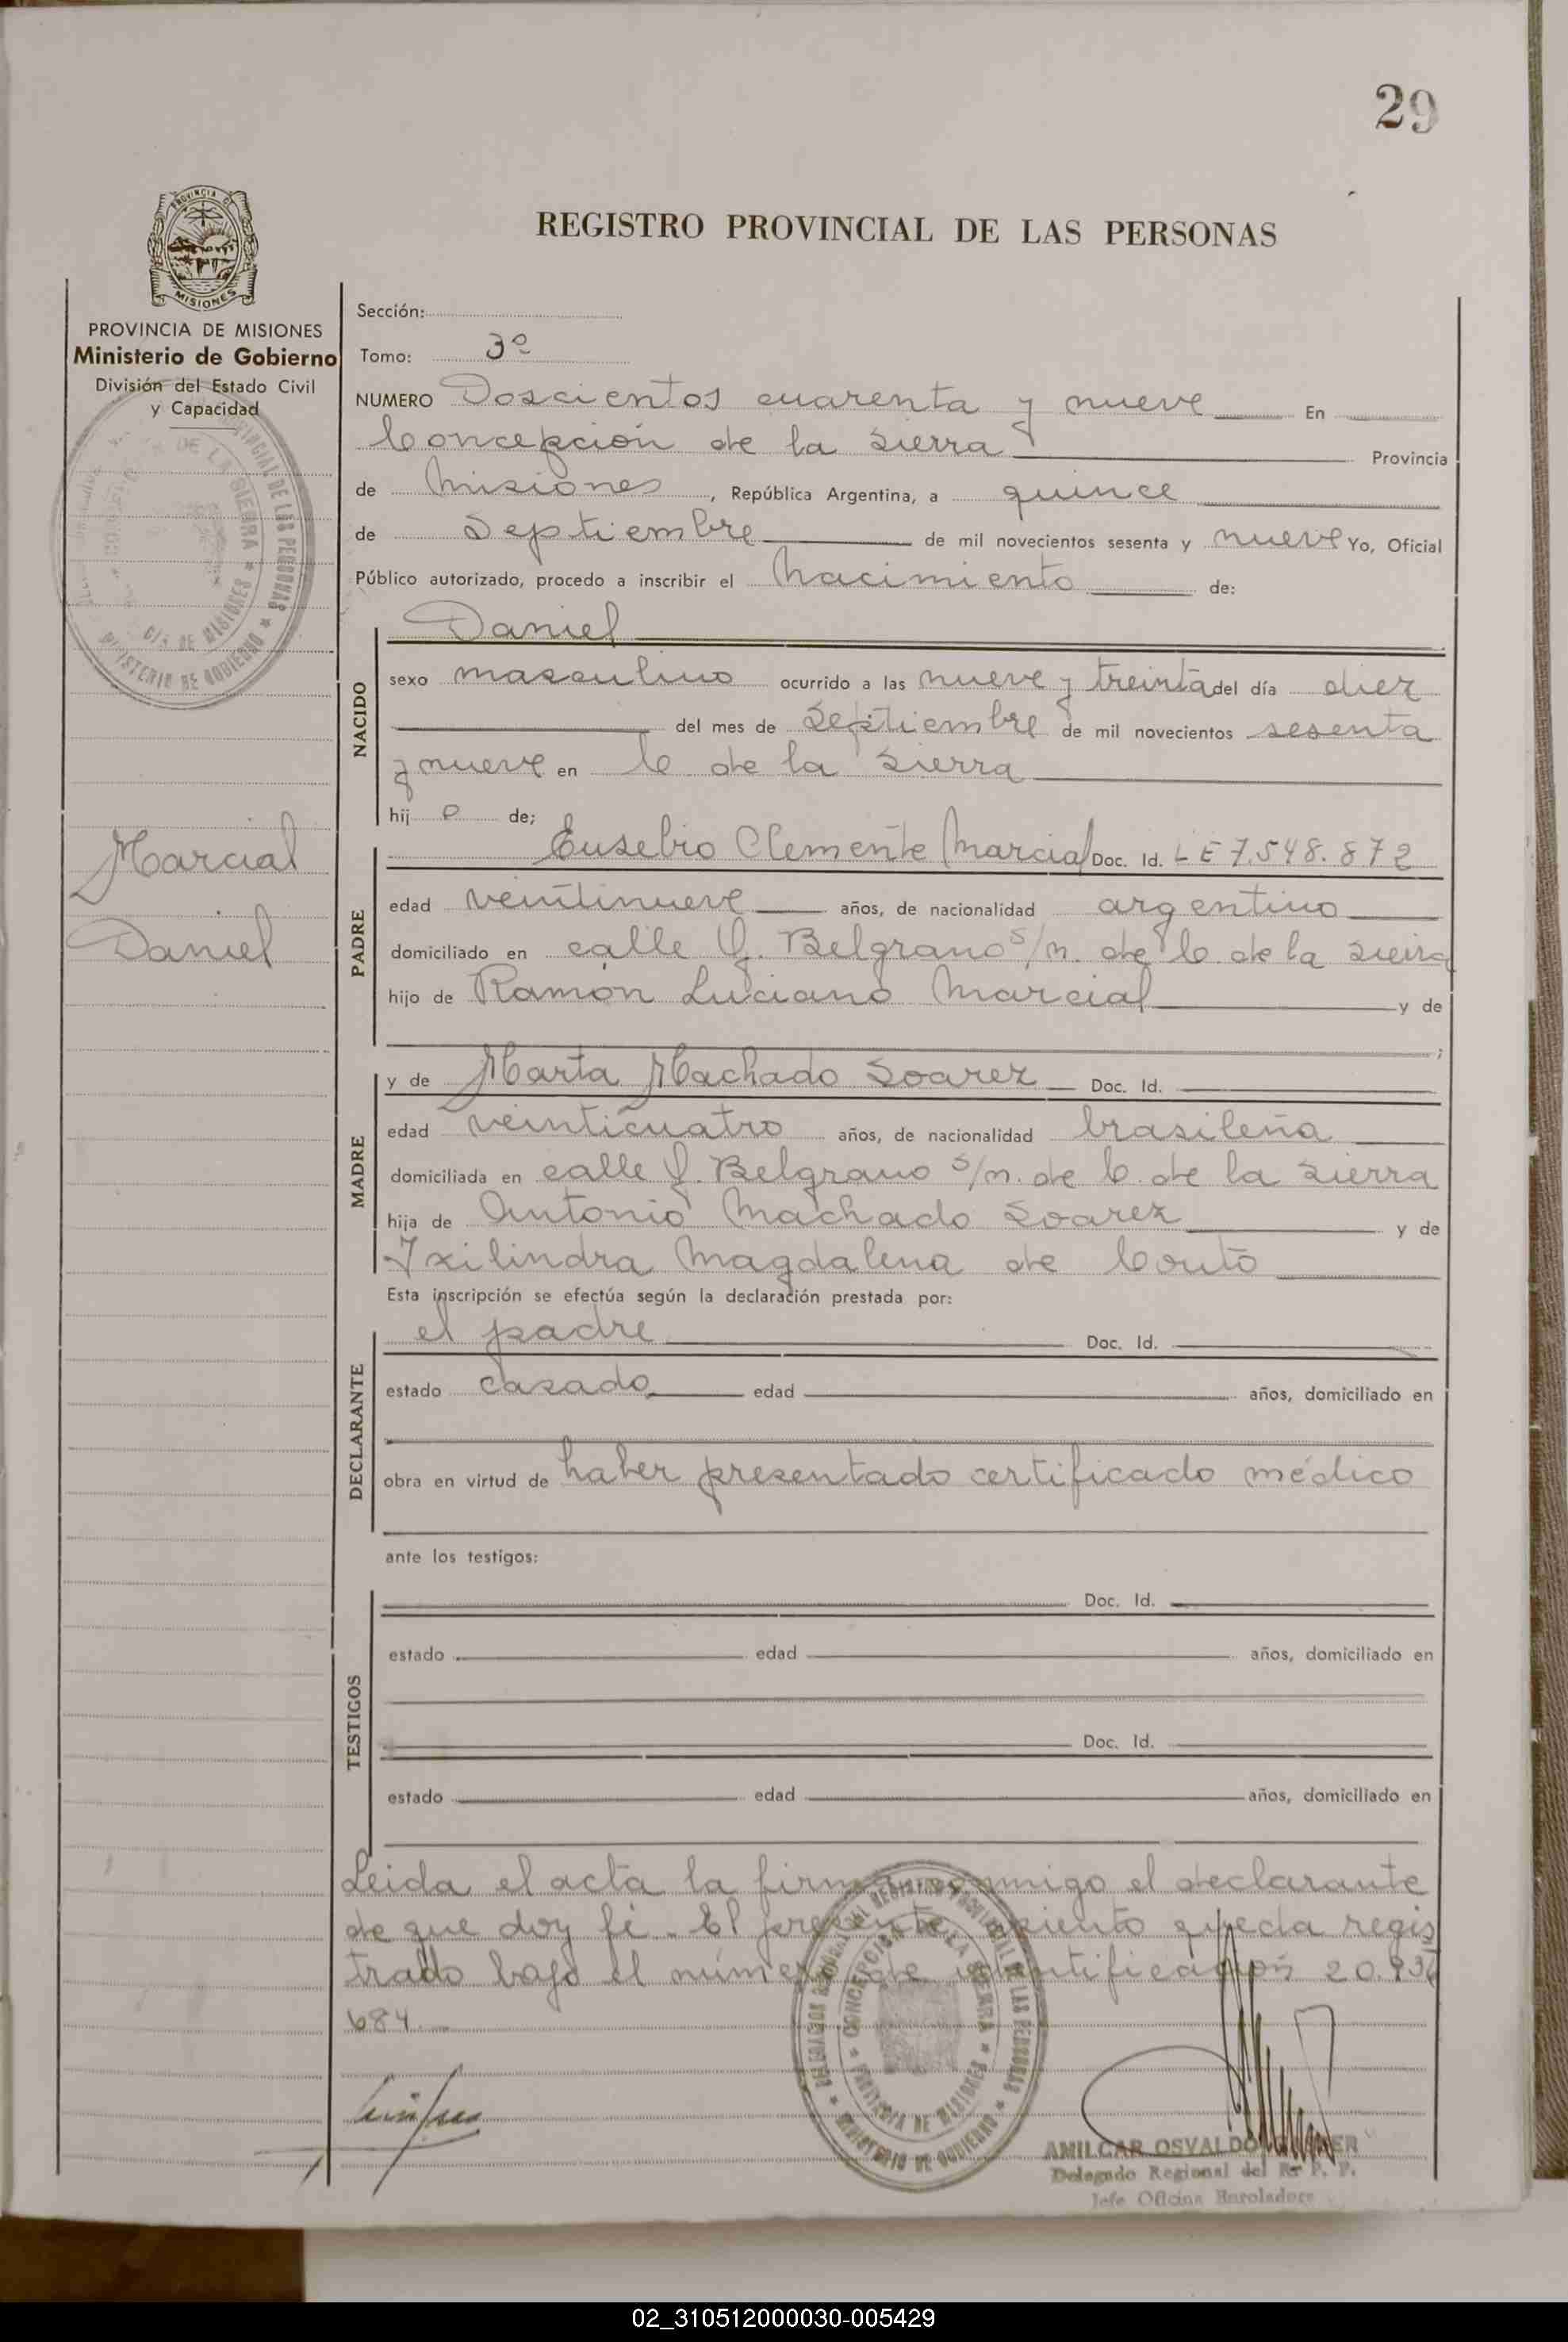 29
REGISTRO PROVINCIAL DE LAS PERSONAS
PROVINCIA
MISIONES
PROVINCIA DE MISIONES
Ministerio de Gobierno
División del Estado Civil
y Capacidad
Marcial
Daniel
Sección:
Tomo: 3º
NUMERO Doscientos cuarenta y nueve En
Concepción de la Sierra Provincia
de Misiones, República Argentina, a quince
de Septiembre de mil novecientos sesenta y nueve Yo, Oficial
Público autorizado, procedo a inscribir el Nacimiento de:
NACIDO
Daniel
sexo masculino ocurrido a las nueve y treinta del día diez
del mes de Septiembre de mil novecientos sesenta
y nueve en C de la Sierra
hijo de;
PADRE
Eusebio Clemente Marcial Doc. Id. LE 7.548.872
edad veintinueve años, de nacionalidad argentino
domiciliado en calle Belgrano s/n. de C. de la Sierra
hijo de Ramón Luciano Marcial y de
;
MADRE
y de Marta Machado Soarez Doc. Id.
edad veinticuatro años, de nacionalidad brasileña
domiciliada en calle Belgrano s/n. de C. de la Sierra
hija de Antonio Machado Soarez y de
Ixilindra Magdalena de Couto
Esta inscripción se efectúa según la declaración prestada por:
DECLARANTE
el padre Doc. Id.
estado casado edad años, domiciliado en
obra en virtud de haber presentado certificado médico
ante los testigos:
TESTIGOS
Doc. Id.
estado edad años, domiciliado en
Doc. Id.
estado edad años, domiciliado en
Leida el acta la firma conmigo el declarante
de que doy fé. El presente asiento queda regis
trado bajo el número de identificación 20.
684.
CONCEPCION DE LA SIERRA
PROVINCIA DE MISIONES
MINISTERIO DE GOBIERNO
AMILCAR OSVALDO
Delegado Regional del R. P. P.
Jefe Oficina Enroladora
02_310512000030-005429